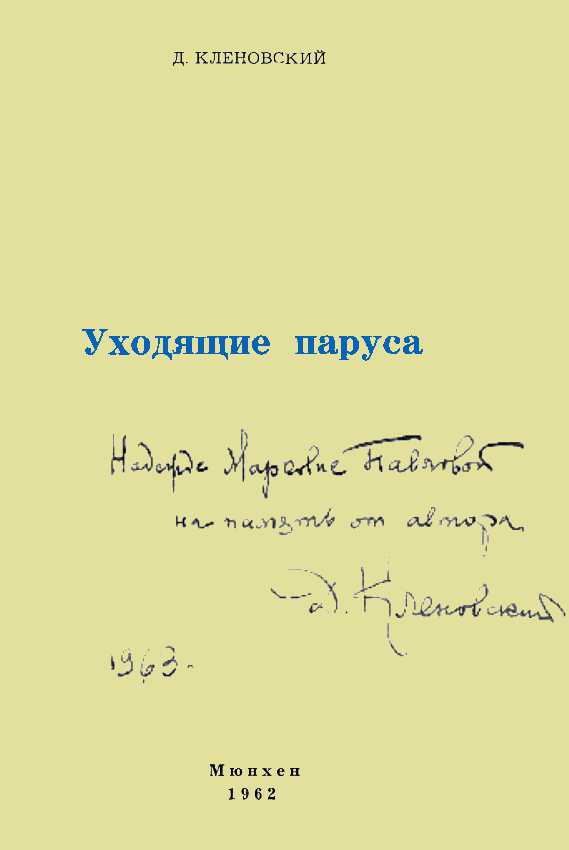 Д. КЛЕНОВСКИЙ
Уходящие паруса
Надежде Марковне Павловой
на память от автора
Д. Кленовский
1963.
Мюнхен
1962